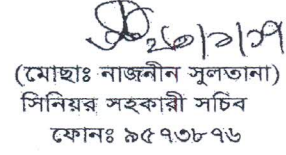 (মোছাঃ নাজনীন সুলতানা)
সিনিয়র সহকারী সচিব
ফোনঃ ৯৫৭৩৮৭৬